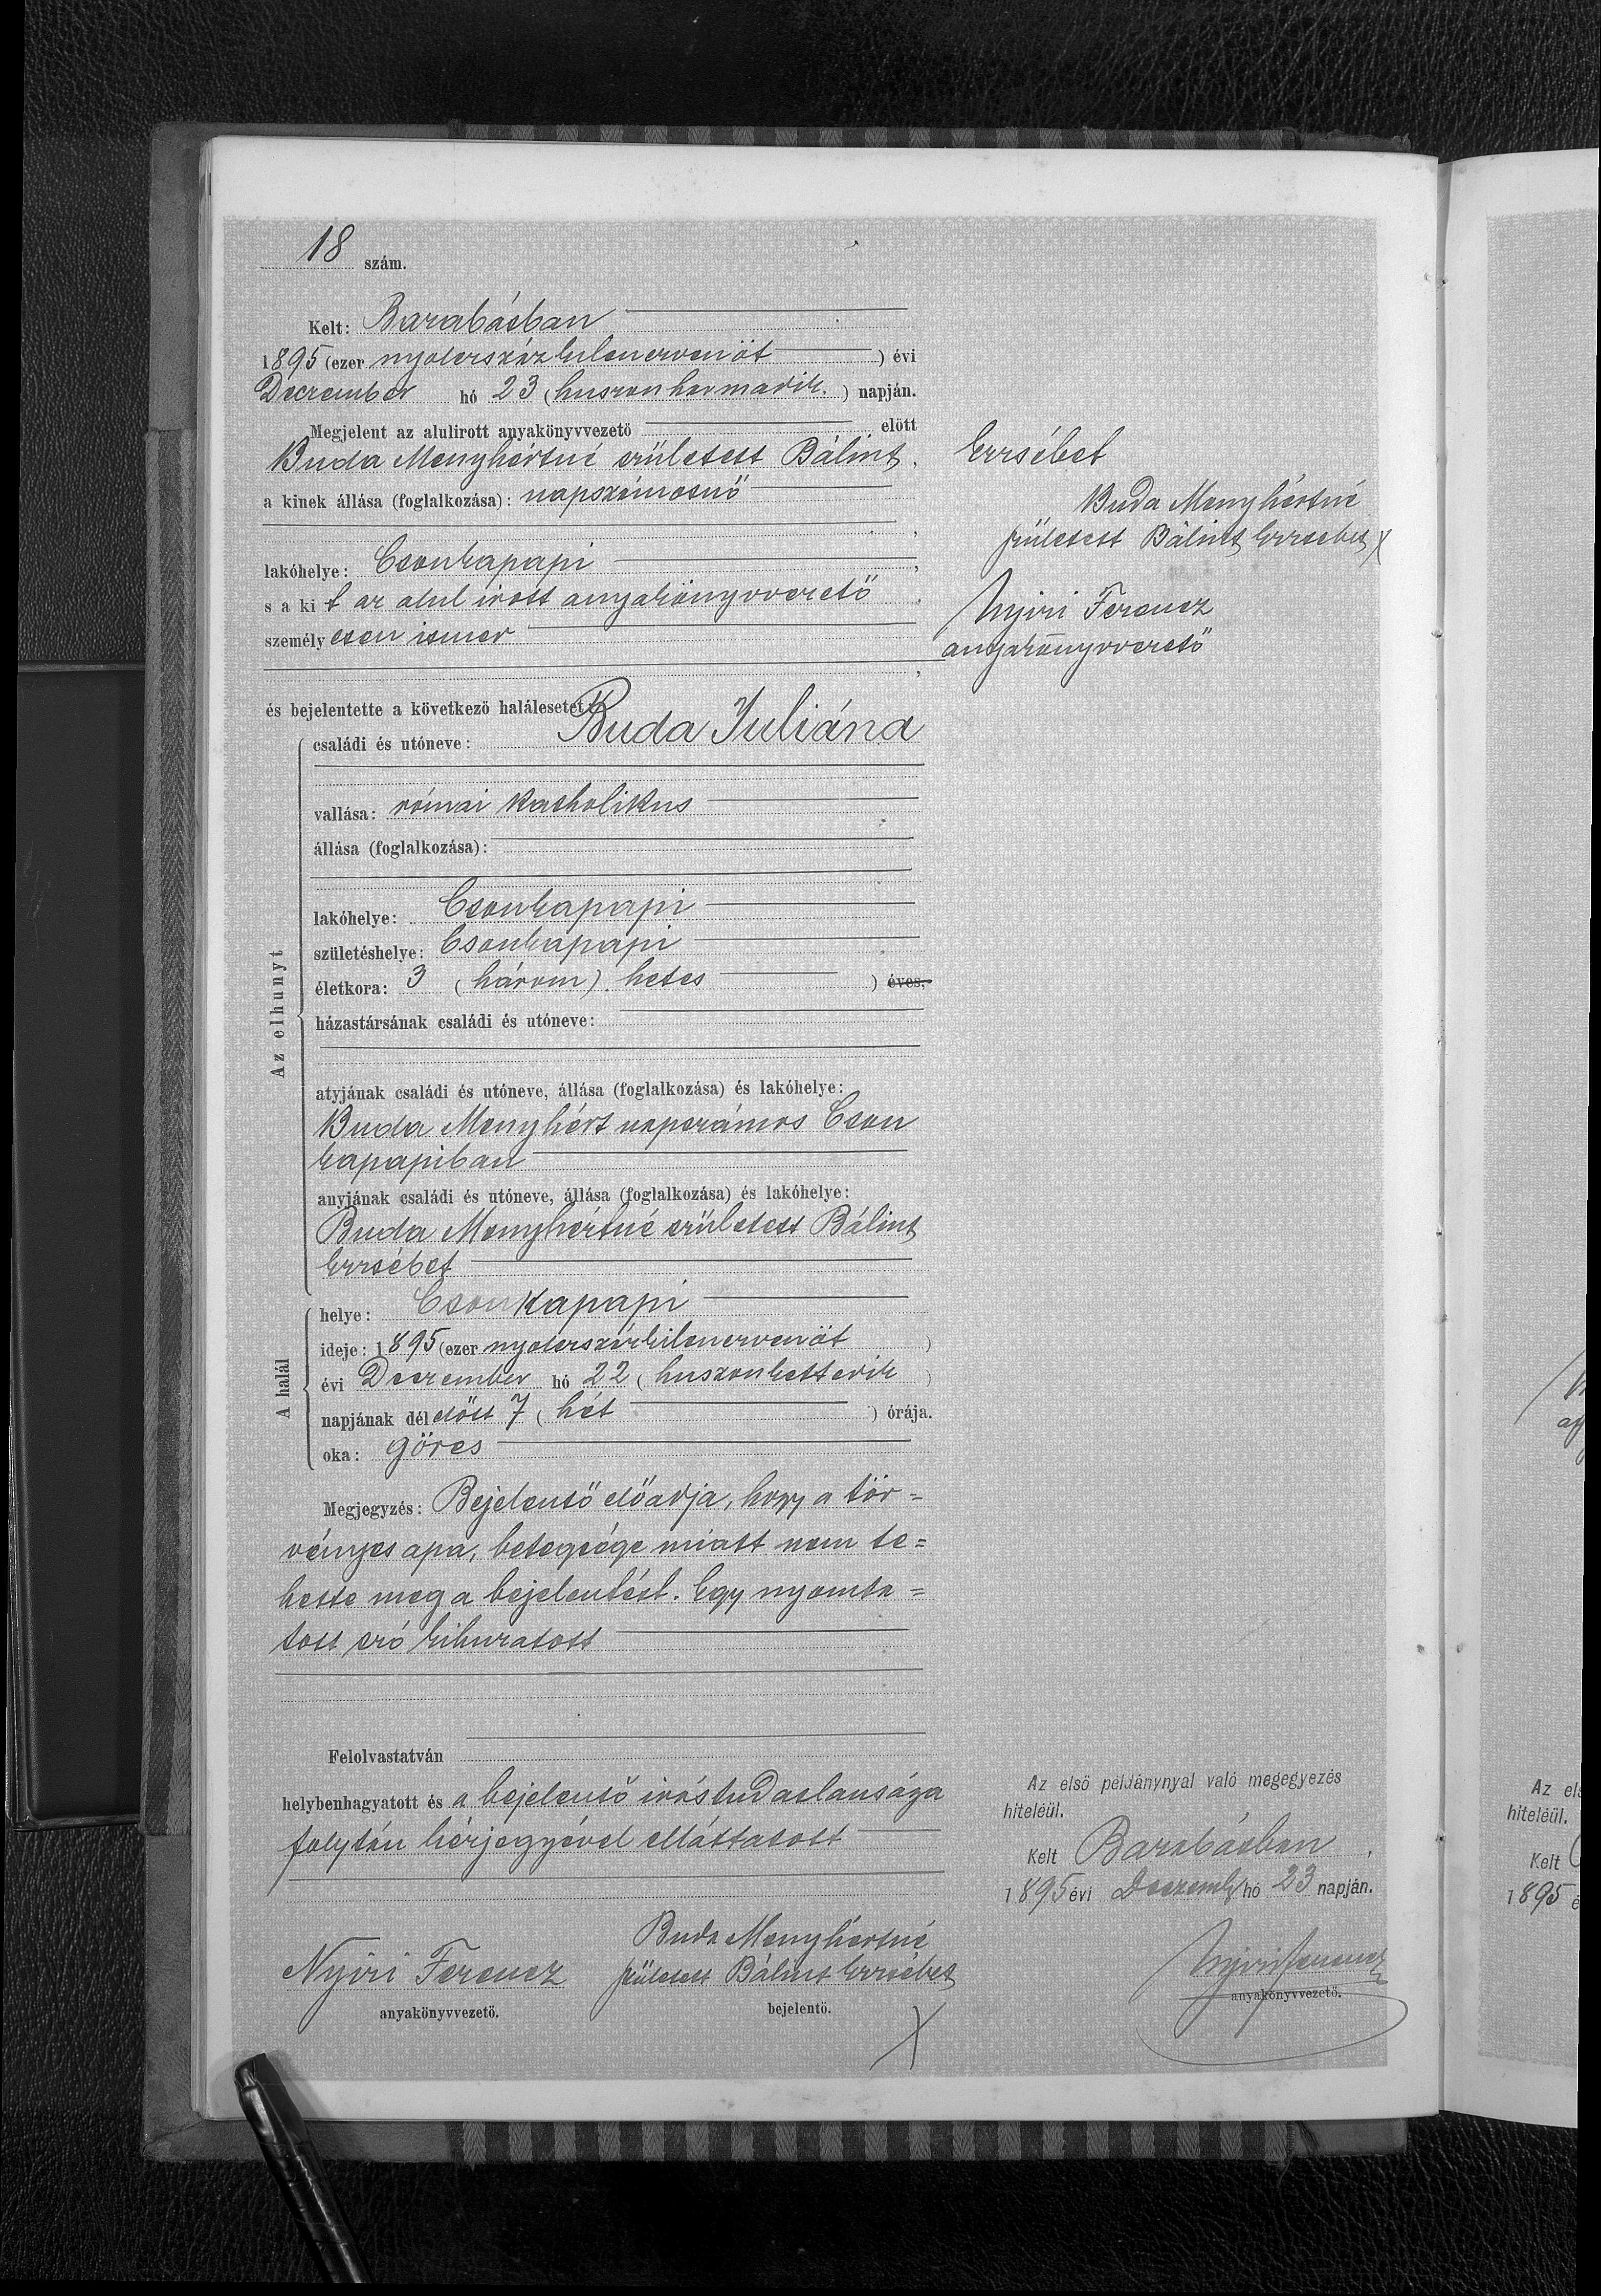 18 szám.
Kelt: Barabásban
1895 (ezer nyolcszázkilencvenöt ) évi
December hó 23 (huszonharmadik. ) napján.
Megjelent az alulirott anyakönyvvezető előtt
Buda Menyhértné született Bálint, Erzsébet
a kinek állása (foglalkozása): napszámosnő
Buda Menyhértné
született Bálint Erzsébet X
lakóhelye: Csonkapapi
s a kit az alul irott anyakönyvvezető
Nyiri Ferencz
személyesen ismer
anyakönyvvezető
és bejelentette a következő halálesetet:
Az elhunyt
családi és utóneve: Buda Juliána
vallása: római katholikus
állása (foglalkozása):
lakóhelye: Csonkapapi
születéshelye: Csonkapapi
életkora: 3 (három). hetes ) éves.
házastársának családi és utóneve:
atyjának családi és utóneve, állása (foglalkozása) és lakóhelye:
Buda Menyhért napszámos Cson
kapapiban
anyjának családi és utóneve, állása (foglalkozása) és lakóhelye:
Buda Menyhértné született Bálint
Erzsébet
A halál
helye: Csonkapapi
ideje: 1895 (ezer nyolcszázkilencvenöt )
évi December hó 22 (huszonkettedik )
napjának délelőtt 7 (hét ) órája.
oka: görcs
Megjegyzés: Bejelentő előadja, hogy a tör=
vényes apa, betegsége miatt nem te=
hette meg a bejelentést. Egy nyomta=
tott szó kihuzatott
Felolvastatván
helybenhagyatott és a bejelentő irástudatlansága
folytán kézjegyével elláttatott
Az első példánynyal való megegyezés
hiteléül.
Kelt Barabásban,
1895 évi Decemb. hó 23 napján.
Buda Menyhértné
Nyiri Ferencz született Bálint Erzsébet
anyakönyvvezető. bejelentő.
X
Nyiri Ferencz
anyakönyvvezető.
Az els
hiteléül.
Kelt
1895 é